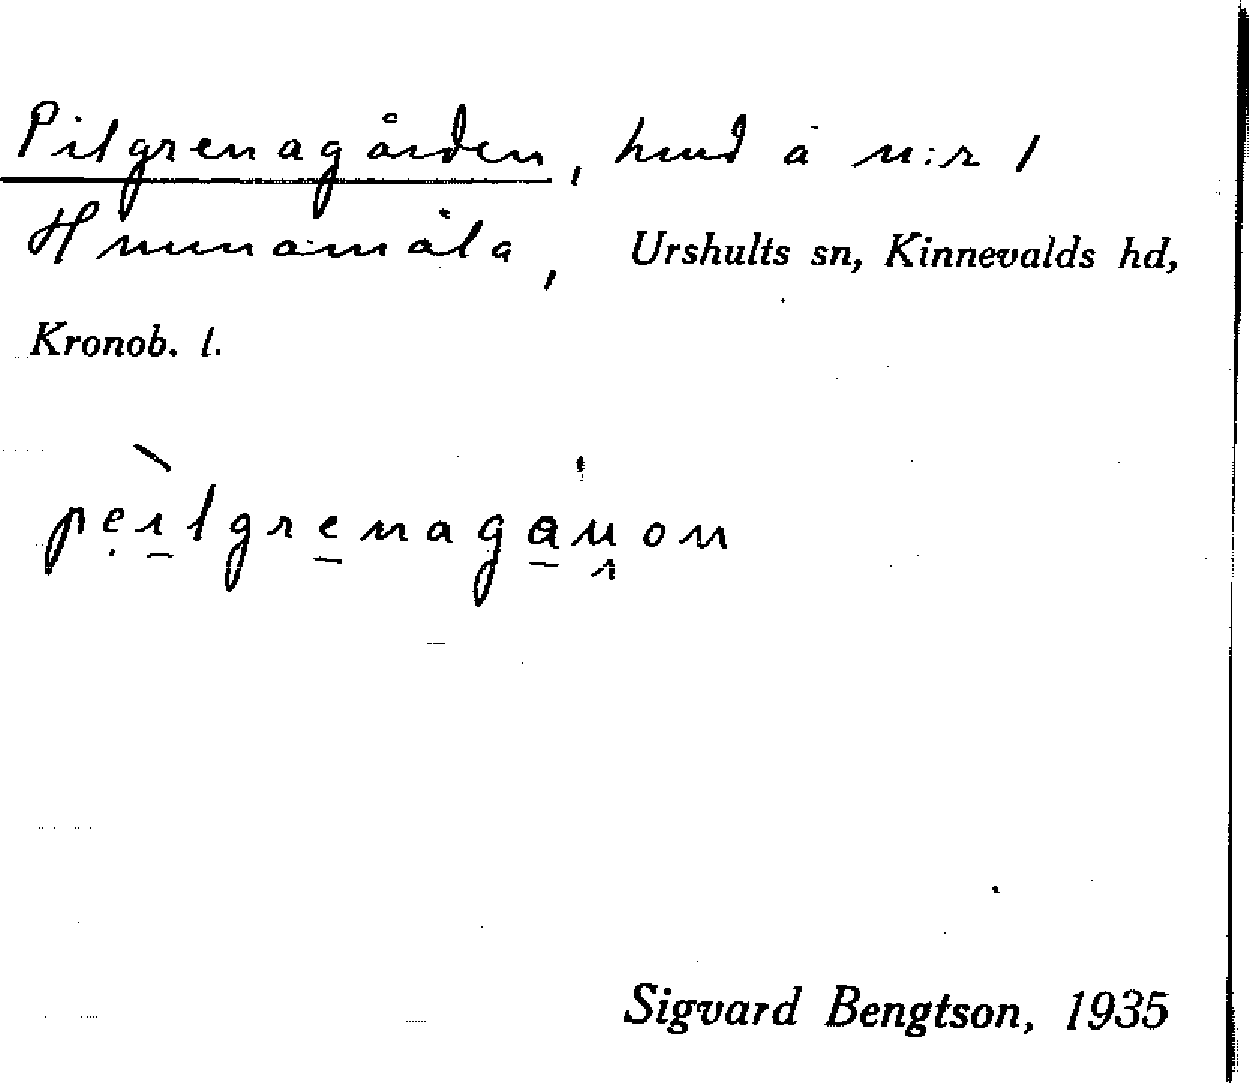 Pilgrenagården, hmd å n:r 1
Hunnamåla, Urshults sn, Kinnevalds hd,
Kronob. l.
Sigvard Bengtson, 1935